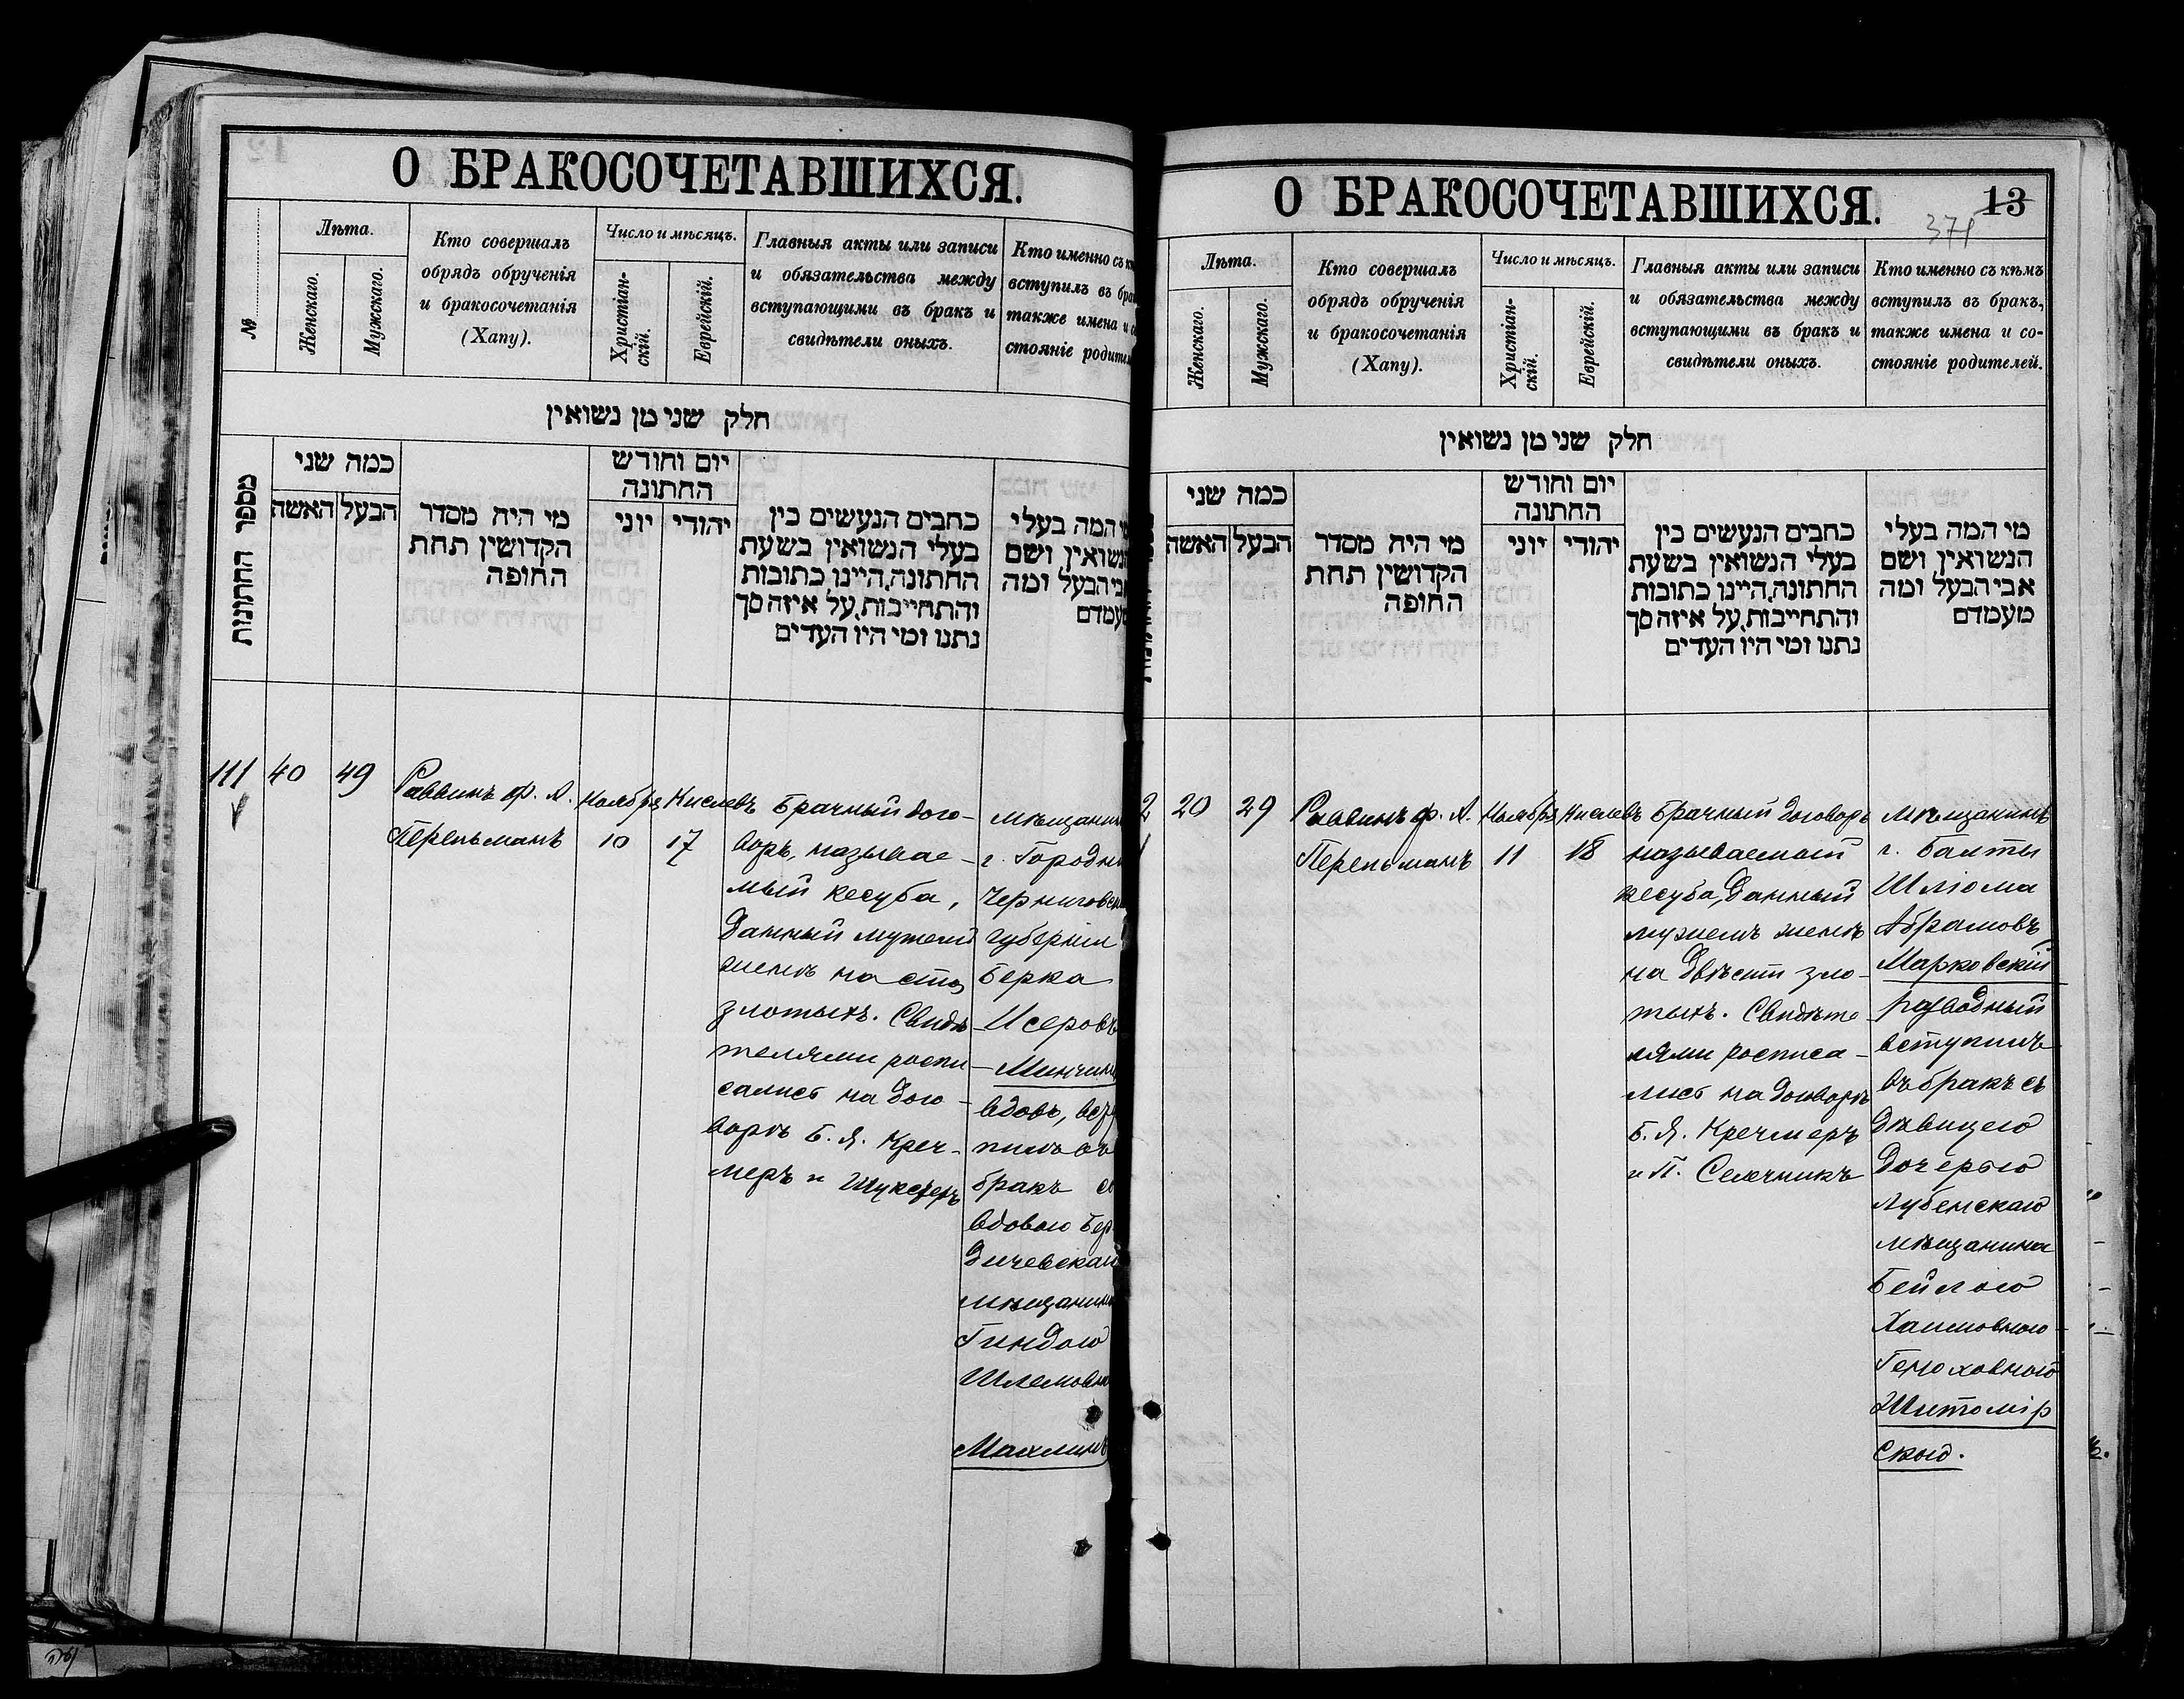 О БРАКОСОЧЕТАВШИХСЯ.
№
Лѣта.
Женскаго.
Мужскаго.
Кто совершалъ
обрядъ обрученія
и бракосочетанія
(Хапу).
Число и мѣсяцъ.
Христіан-
скій.
Еврейскій.
Главныя акты или записи
и обязательства между
вступающими въ бракъ и
свидѣтели оныхъ.
Кто именно съ
вступилъ въ
также имена и
стояніе
חלק שני מן נשואין
מספר החתונות
כמה שני
הבעל האשה
מי היה מסדר
הקדושין תחת
החופה
יום וחודש
החתונה
יהודי יוני
כתבים הנעשים בין
בעלי הנשואין בשעת
החתונה, היינו כתובות
והתחייבות, על איזה סך
נתנו ומי היו העדים
המה בעלי
הנשואין ושם
אבי הבעל ומה
מעמדם
111
40
49
Раввинъ ф. А.
Перельманъ
Ноября
10
Кислевъ
17
Брачный дого-
воръ, называе-
мый кесуба,
данный мужемъ
женѣ на сто
злотыхъ. Свидѣ-
телями роспи-
сались на дого-
ворѣ Б. Я. Креч-
меръ и
мѣщанинъ
г. Городни
Черниговск
губерніи
Берка
Исеровъ
Минчин
вдовъ, всту
пилъ въ
бракъ съ
вдовою Бер
дичевскаго
мѣщанина
Гиндою
Шлемовн
Махлинъ
О БРАКОСОЧЕТАВШИХСЯ.
13
Лѣта.
Женскаго.
Мужскаго.
Кто совершалъ
обрядъ обрученія
и бракосочетанія
(Хапу).
Число и мѣсяцъ.
Христіан-
скій.
Еврейскій.
Главныя акты или записи
и обязательства между
вступающими въ бракъ и
свидѣтели оныхъ.
Кто именно съ кѣмъ
вступилъ въ бракъ,
также имена и со-
стояніе родителей.
חלק שני מן נשואין
כמה שני
הבעל האשה
מי היה מסדר
הקדושין תחת
החופה
יום וחודש
החתונה
יהודי יוני
כתבים הנעשים בין
בעלי הנשואין בשעת
החתונה, היינו כתובות
והתחייבות, על איזה סך
נתנו ומי היו העדים
מי המה בעלי
הנשואין ושם
אבי הבעל ומה
מעמדם
2
20
29
Раввинъ ф. А.
Перельманъ
Ноября
11
Кислевъ
18
Брачный договоръ
называемый
кесуба, данный
мужемъ женѣ
на двѣсти зло-
тыхъ. Свидѣте-
лями росписа-
лись на договорѣ
Б. Я. Кречмеръ
и П. Селечникъ
Мѣщанинъ
г. Балты
Шліома
Абрамовъ
Марковскій
разводный
вступилъ
въ бракъ съ
дѣвицею
дочерью
Лубенскаго
мѣщанина
Бейлою
Хаимовною
Геноховною
Житомір
скою.